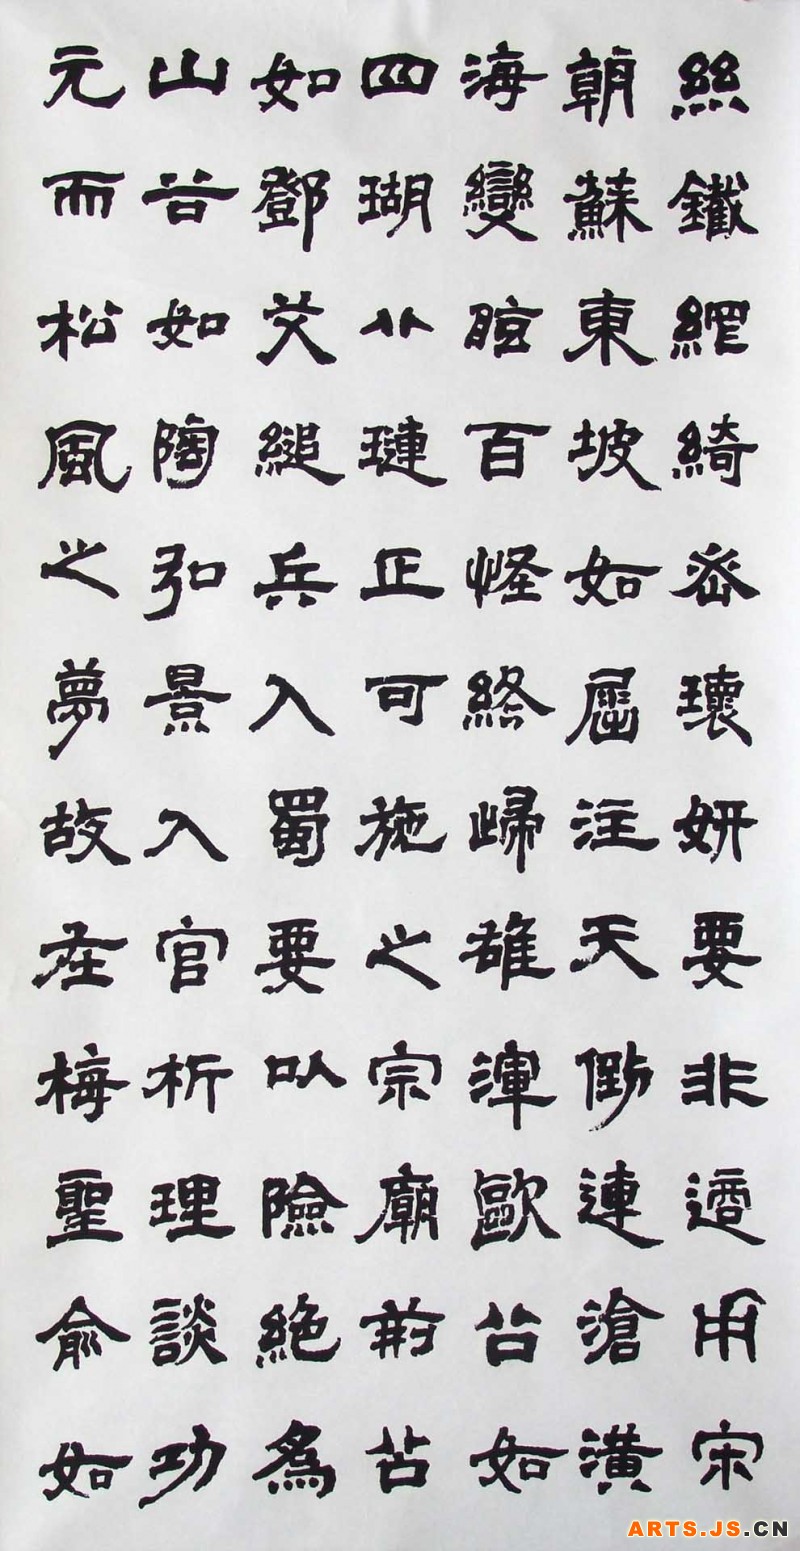 絲鐵網綺密瓌妍要非適用宋
朝蘇東坡如屈注天倒連滄潢
海變眩百怪終歸雄渾歐公如
四瑚八璉正可施之宗廟荊公
如鄧艾縋兵入蜀要以險絕為
山谷如陶弘景入官析理談功
元而松風之夢故在梅聖俞如
ARTS.JS.CN